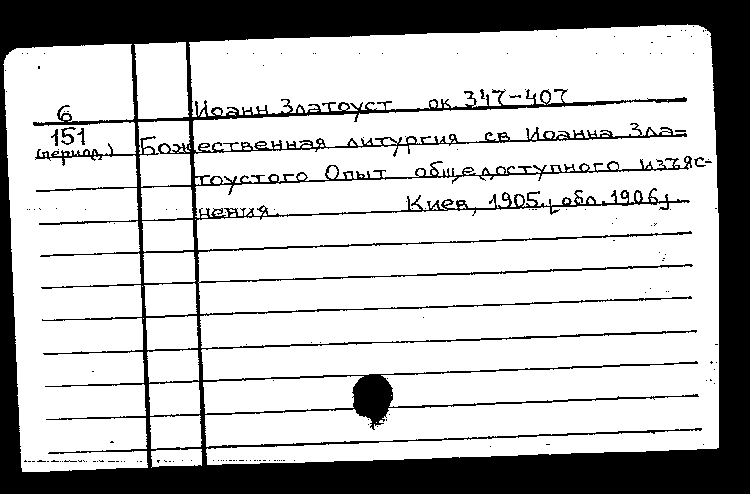 6
151
(период.)
Иоанн Златоуст ок. 347-407
Божественная литургия св Иоанна Зла=
тоустого Опыт общедоступного изъяс-
нения. Киев, 1905. [обл. 1906].